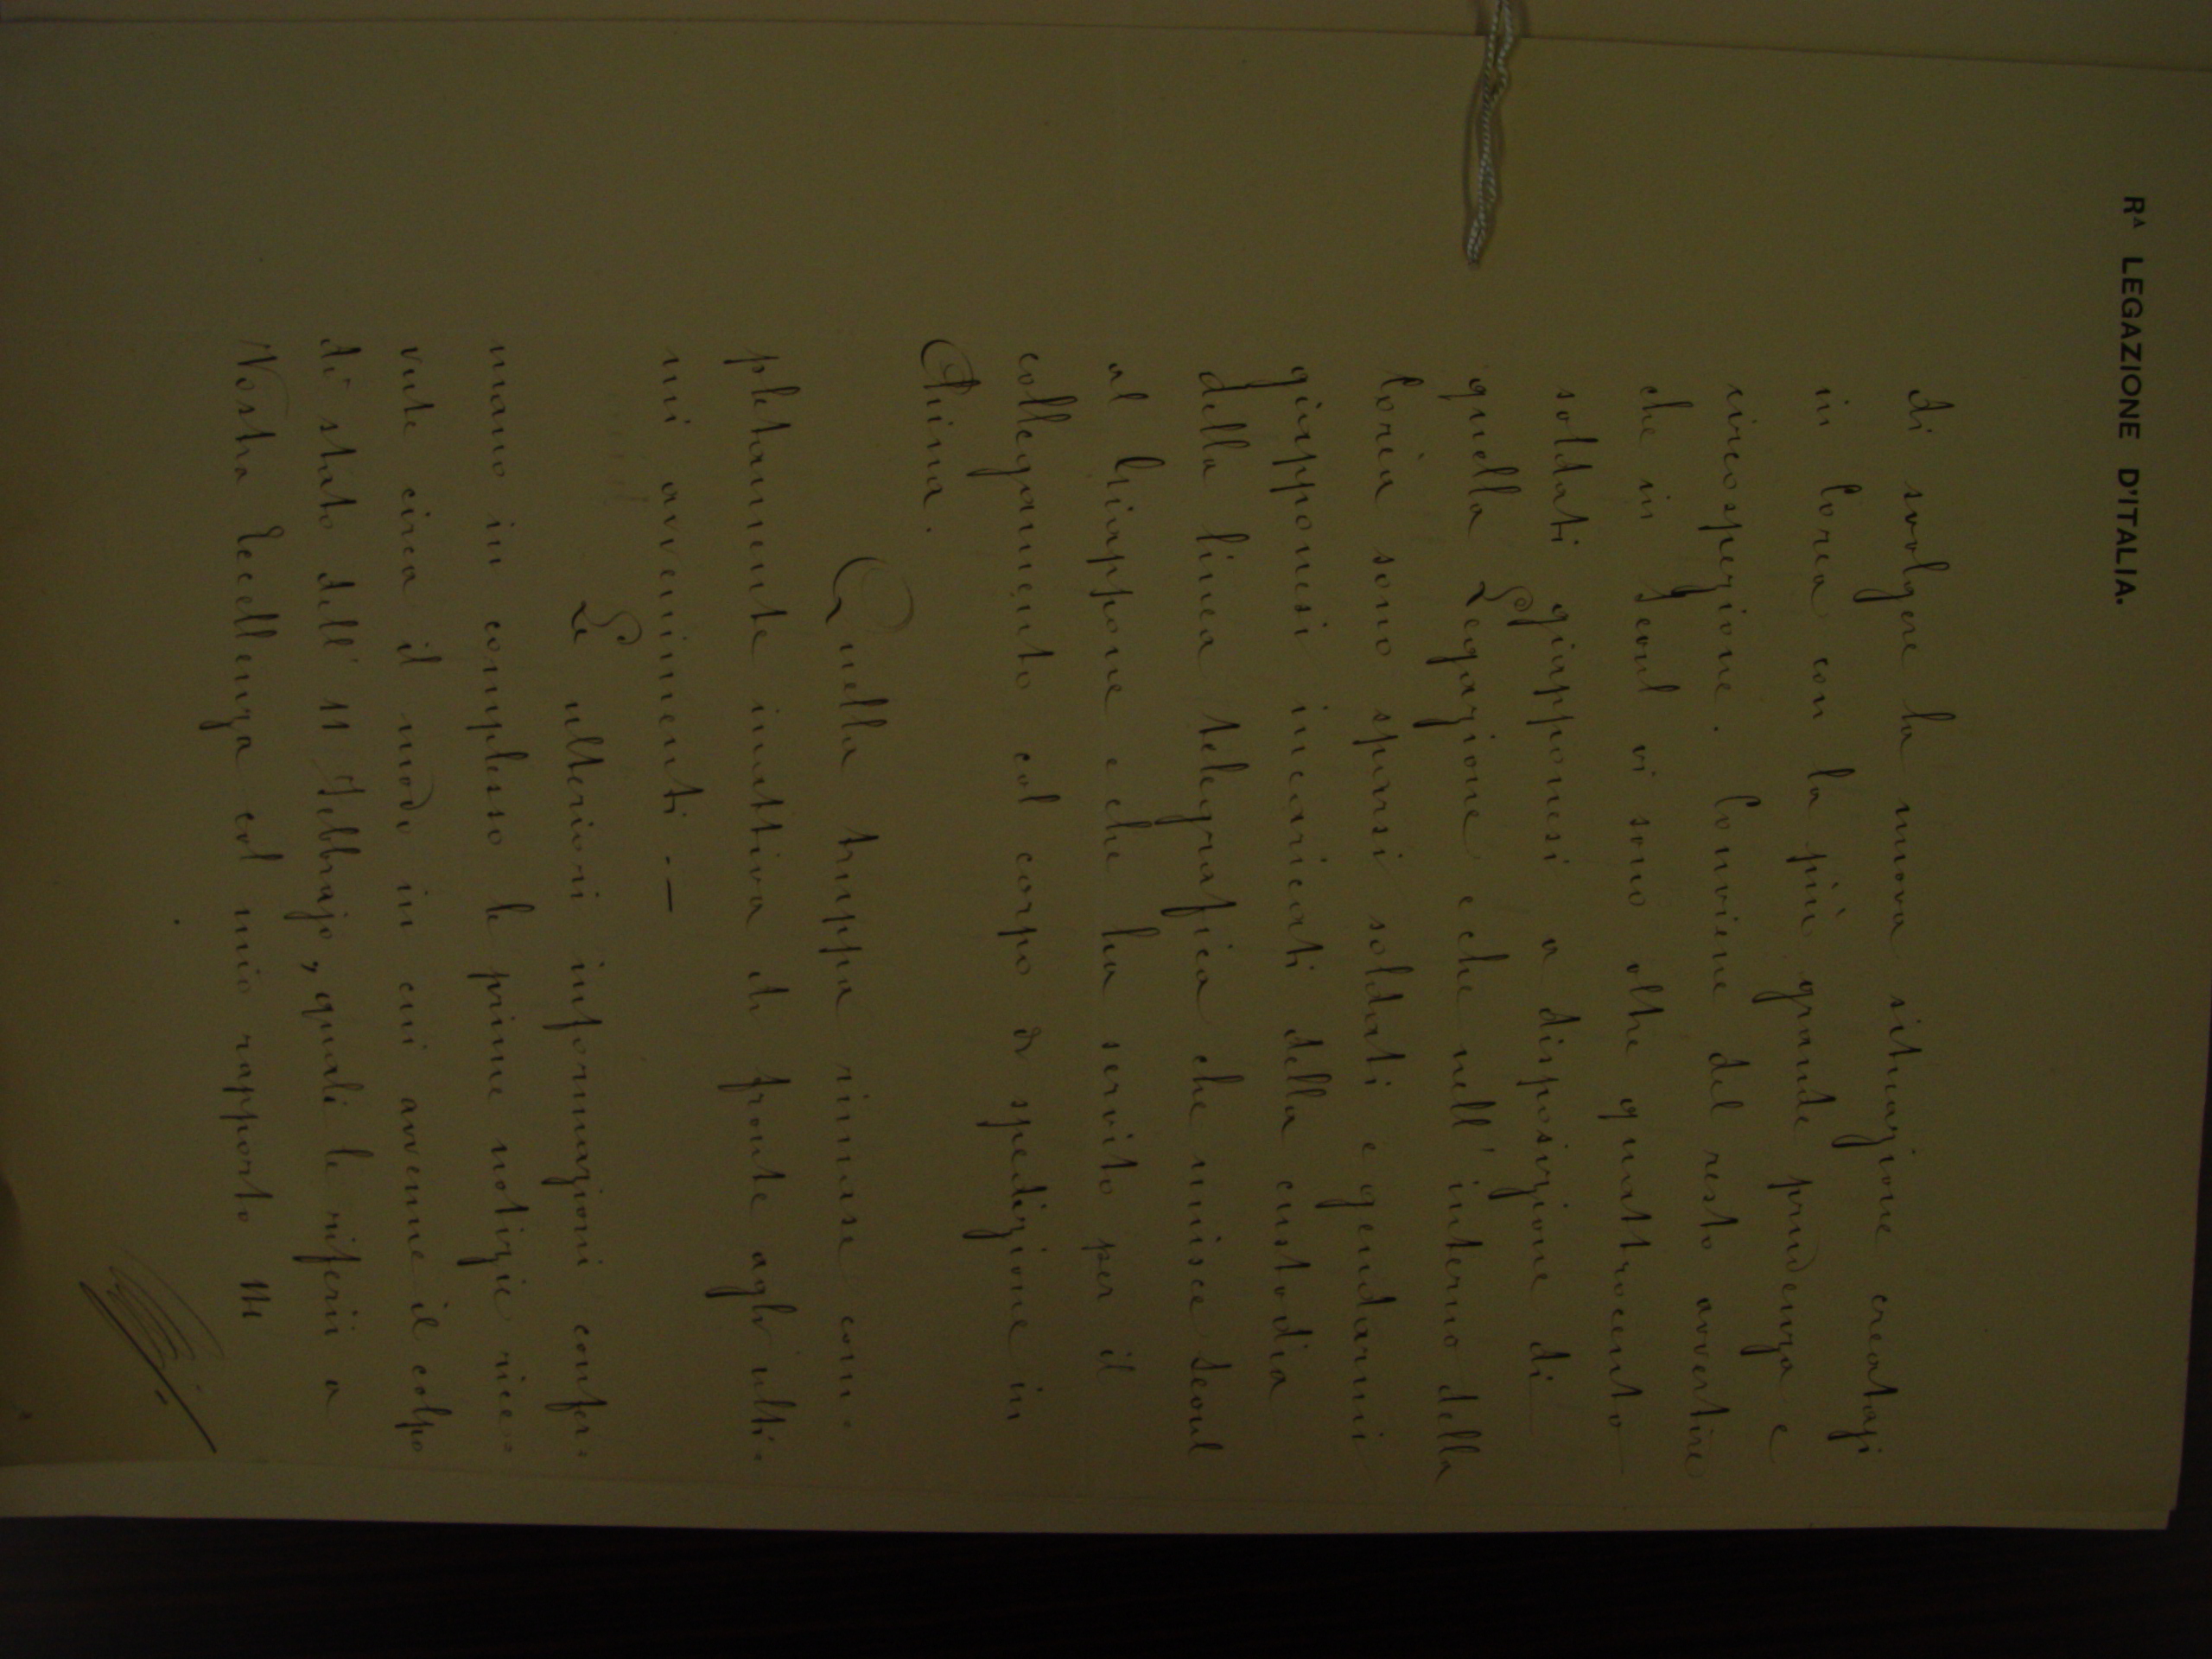 Rᴬ LEGAZIONE D'ITALIA.
di svolgere la nuova situazione creatasi
in Corea con la più grande prudenza e
circospezione. Conviene del resto avvertire
che in Seoul vi sono oltre quattrocento
soldati giapponesi a disposizione di
quella Legazione e che nell' interno della
Corea sono sparsi soldati e gendarmi
giapponesi incaricati della custodia
della linea telegrafica che unisce Seoul
al Giappone e che ha servito per il
collegamento col corpo di spedizione in
China.
Quella truppa rimase com-
pletamente inattiva di fronte agli ulti-
mi avvenimenti. —
Le ulteriori informazioni confer-
mano in complesso le prime notizie rice-
vute circa il modo in cui avvenne il colpo
di stato dell' 11 Febbrajo, quali le riferii a
Vostra Eccellenza col mio rapporto